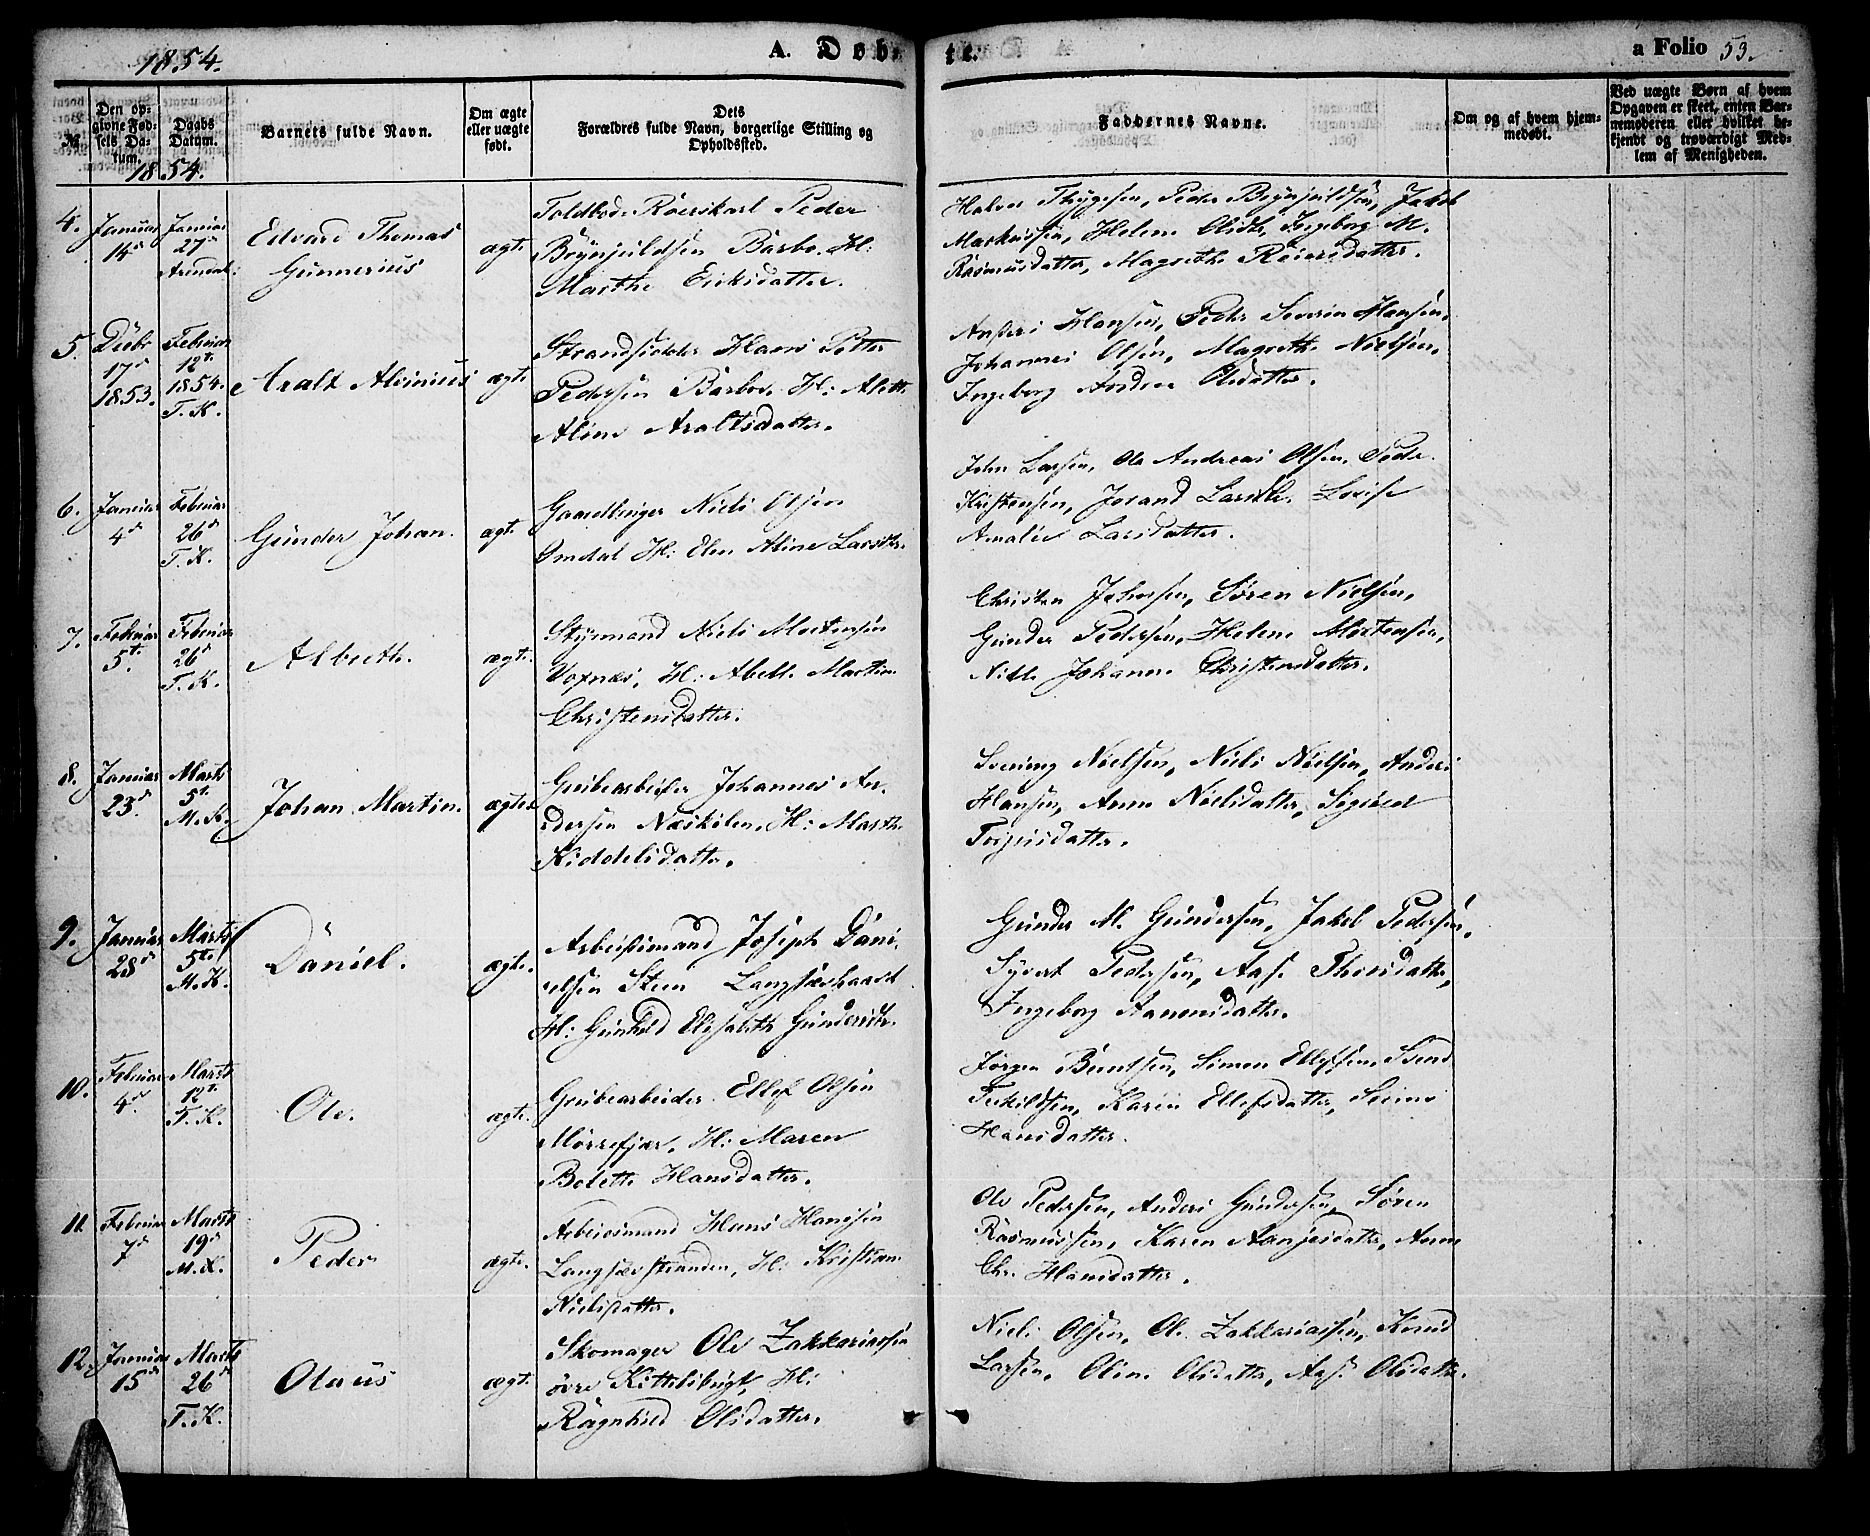 1854.
A. Døbte.
a Folio 53.
№
Den opgivne Fødsels Datum.
Daabs Datum.
Barnets fulde Navn.
Om ægte eller uægte født.
Dets Forældres fulde Navn, borgerlige Stilling og Opholdssted.
Faddernes Navne.
Om og af hvem hjemmedøbt.
Ved uægte Børn af hvem Opgaven er skeet, enten Barnemoderen eller hvilket bekjendt og troværdigt Medlem af Menigheden.
1854.
4.
Januar
14d
Januar
27d
Arendal.
Edvard Thomas
Gunnerius
ægte
Toldbod-Roerskarl Peder
Brynjuldsen Barbo. H:
Marthe Eriksdatter.
Halvor Thygesen, Peder Brynjuldsen, Jakob
Markussen, Helene Olsdtr, Ingeborg M.
Rasmusdatter, Magrethe Roiersdatter.
5.
Decbr
17d
1853.
Februar
12t
1854.
T. K.
Aralt Alvinius
ægte
Strandsidder Hans Petter
Pedersen Barbo. H: Alette
Aline Araltsdatter.
Anders Hansen, Peder Severin Hansen,
Johannes Olsen, Magrethe Nielsen,
Ingeborg Andrea Olsdatter.
6.
Januar
4d
Februar
26d
T. K.
Gunder Johan.
ægte.
Gaardbruger Niels Olsen
Omdal H: Elen Aline Larsdtr.
John Larsen, Ole Andreas Olsen, Peder
Kristensen, Jorand Larsdtr. Lovise
Amalie Larsdatter.
7.
Februar
5t
Februar
26d
T. K.
Albert.
ægte.
Styrmand Niels Mortensen
Voxnæs, H: Abelle Martine
Christensdatter.
Christen Johnsen, Søren Nielsen,
Gunder Pedersen, Helene Mortensen,
Johanne Christensdatter.
8.
Januar
23d
Marts
5t
M. K.
Johan Martin.
ægte.
Grubearbeider Johannes An-
dersen Næskilen, H: Marthe
Kiddelsdatter.
Svening Nielsen, Niels Nielsen, Anders
Hansen, Anne Nielsdatter, Sigrid
Torgersdatter.
9.
Januar
28d
Marts
5t
M. K.
Daniel.
ægte.
Arbeidsmand Joseph Dani-
elsen Steen
H: Gunhild Elisabeth Gundersdtr.
Gunder M. Gundersen, Jakob Pedersen,
Syvert Pedersen, Aase Thorsdatter,
Ingeborg Aanonsdatter.
10.
Februar
4d
Marts
12t
T. K.
Ole.
ægte.
Grubearbeider Ellef Olsen
Mørrefjær, H: Maren
Bolette Hansdatter.
Jørgen Berntsen, Simon Ellefsen, Svend
Terkildsen, Karen Ellefsdatter,
Hansdatter.
11.
Februar
7d
Marts
19d
M. K.
Peder
ægte.
Arbeidsmand Hans Hansen
Langsævstranden, H: Kristiane
Nielsdatter.
Ole Pedersen, Anders Gundersen, Søren
Rasmussen, Karen Aanjersdatter, Anne
Chr. Hansdatter.
12.
Januar
15d
Marts
26d
T. K.
Olaus
ægte.
Skomager Ole Zakkariassen
øvre Kittelsbugt, H:
Ragnhild Olsdatter.
Niels Olsen, Ole Zakkariassen, Knud
Larsen, Oline Olsdatter, Aase Olsdatter.